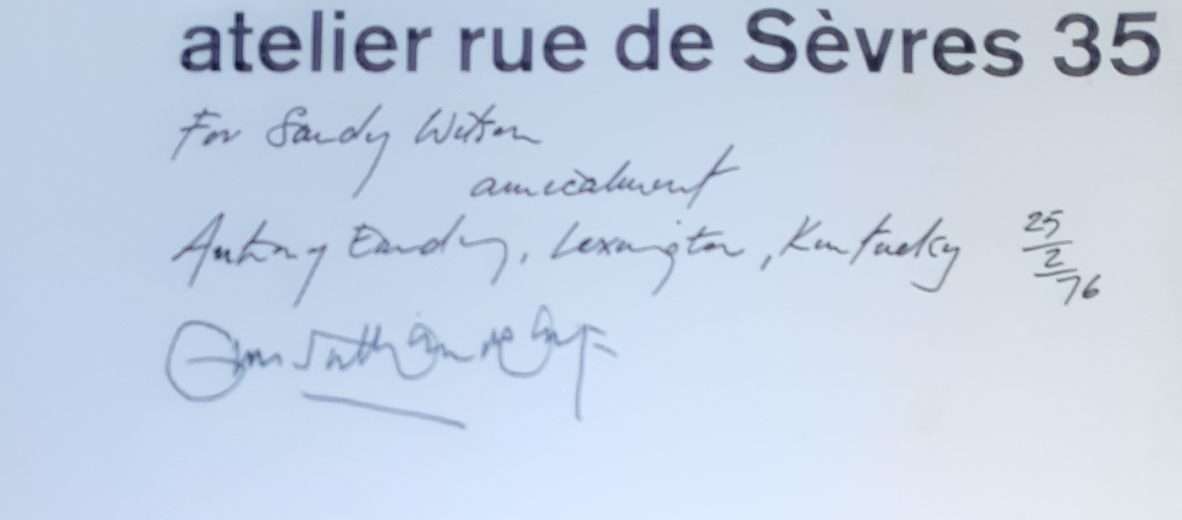 atelier rue de Sèvres 35
For Sandy Wilson
amicalement
Antony Eardley, Lexington, Kentucky 25/2/76